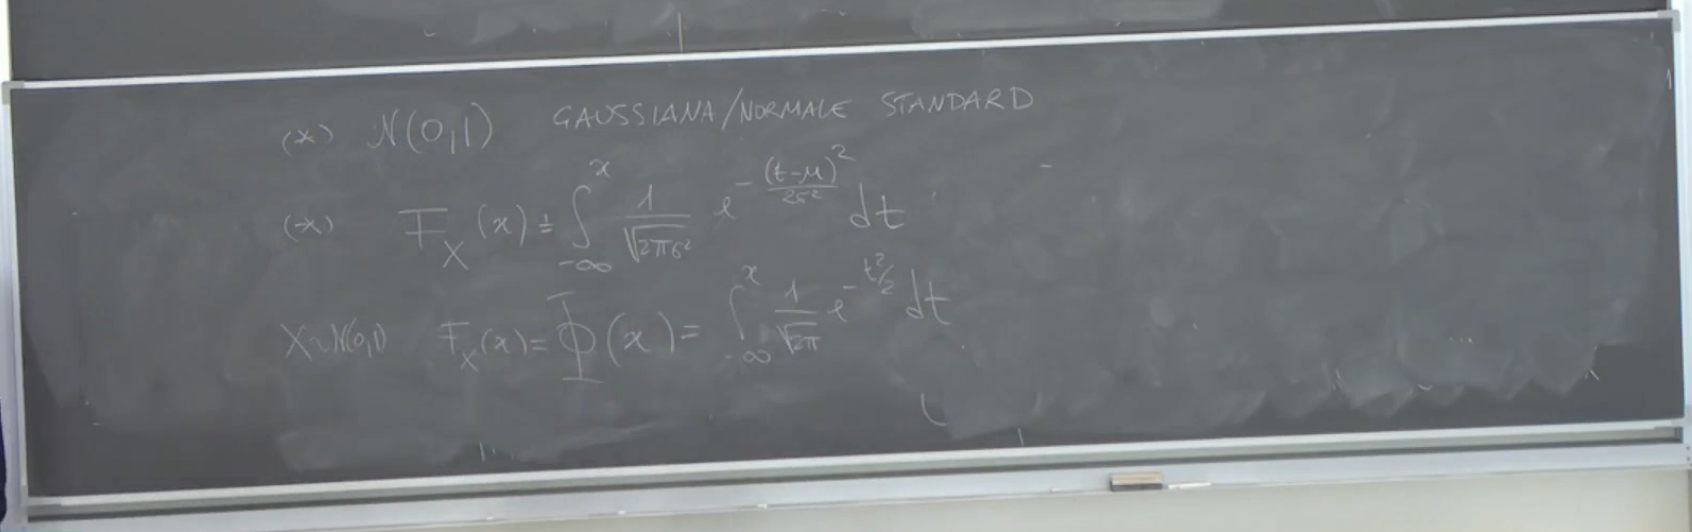 (*) N(0,1) GAUSSIANA/NORMALE STANDARD
(*) F_X(x) = ∫_{-∞}^{x} 1/√(2πσ²) e^{-(t-μ)²/2σ²} dt
X~N(0,1) F_X(x) = Φ(x) = ∫_{-∞}^{x} 1/√(2π) e^{-t²/2} dt